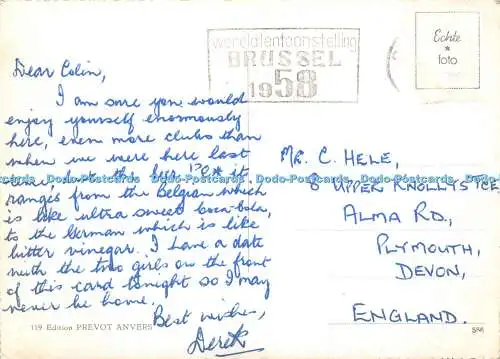 Dear Colin,
I am sure you would
enjoy yourself enormously
here, even more clubs than
when we were here last
time, but the beer it
ranges from the Belgian which
is like ultra sweet Coca-bola,
to the German which is like
bitter vinegar. I have a date
with the two girls on the front
of this card tonight so I may
never be home.
Best wishes,
Derek
119 Edition PREVOT ANVERS
wereldtentoonstelling
BRUSSEL
1958
Echte
foto
MR. C. HELE,
8 UPPER KNOLLYS TCE
ALMA RD,
PLYMOUTH,
DEVON,
ENGLAND.
Dodo-Postcards Dodo-Postcards Dodo-Postcards Dodo-Postcards